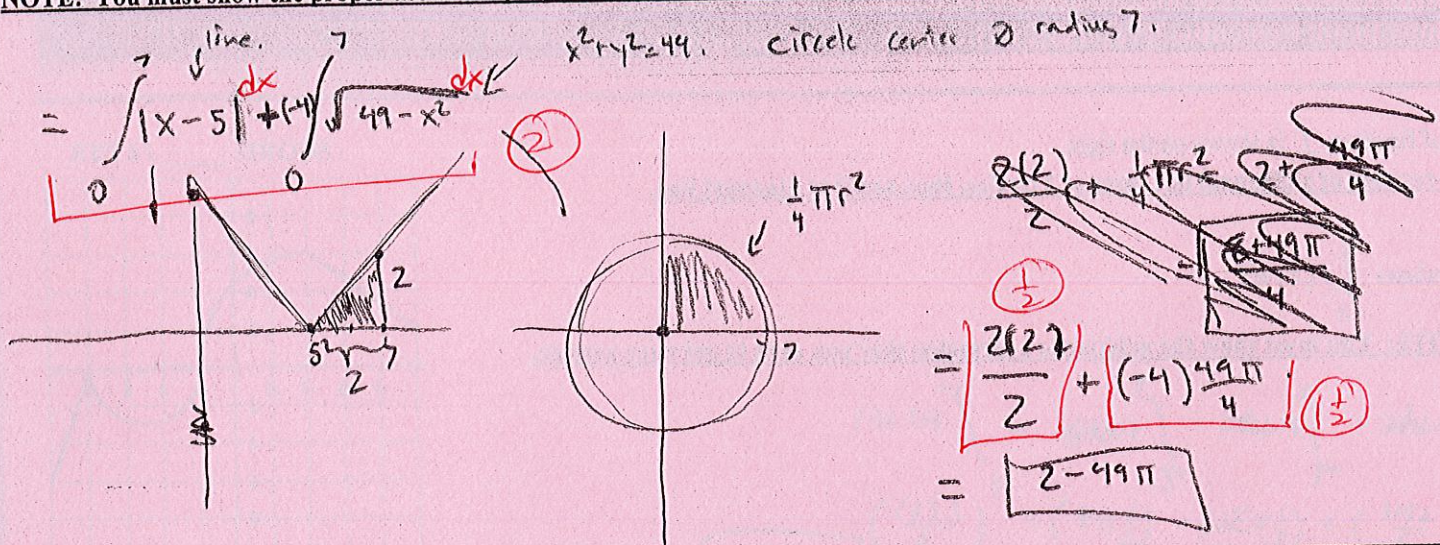 NOTE: You must show the proper
line.
x²+y²=49. circle center @ radius 7.
= ∫₀⁷ |x-5| dx + (-4) ∫₀⁷ √(49-x²) dx
2
¼πr²
2(2)/2 + ¼πr² = 2 + 49π/4
= 8+49π/4
2
5 7
2
7
½
= 2(2)/2 + (-4) 49π/4
1½
= 2-49π